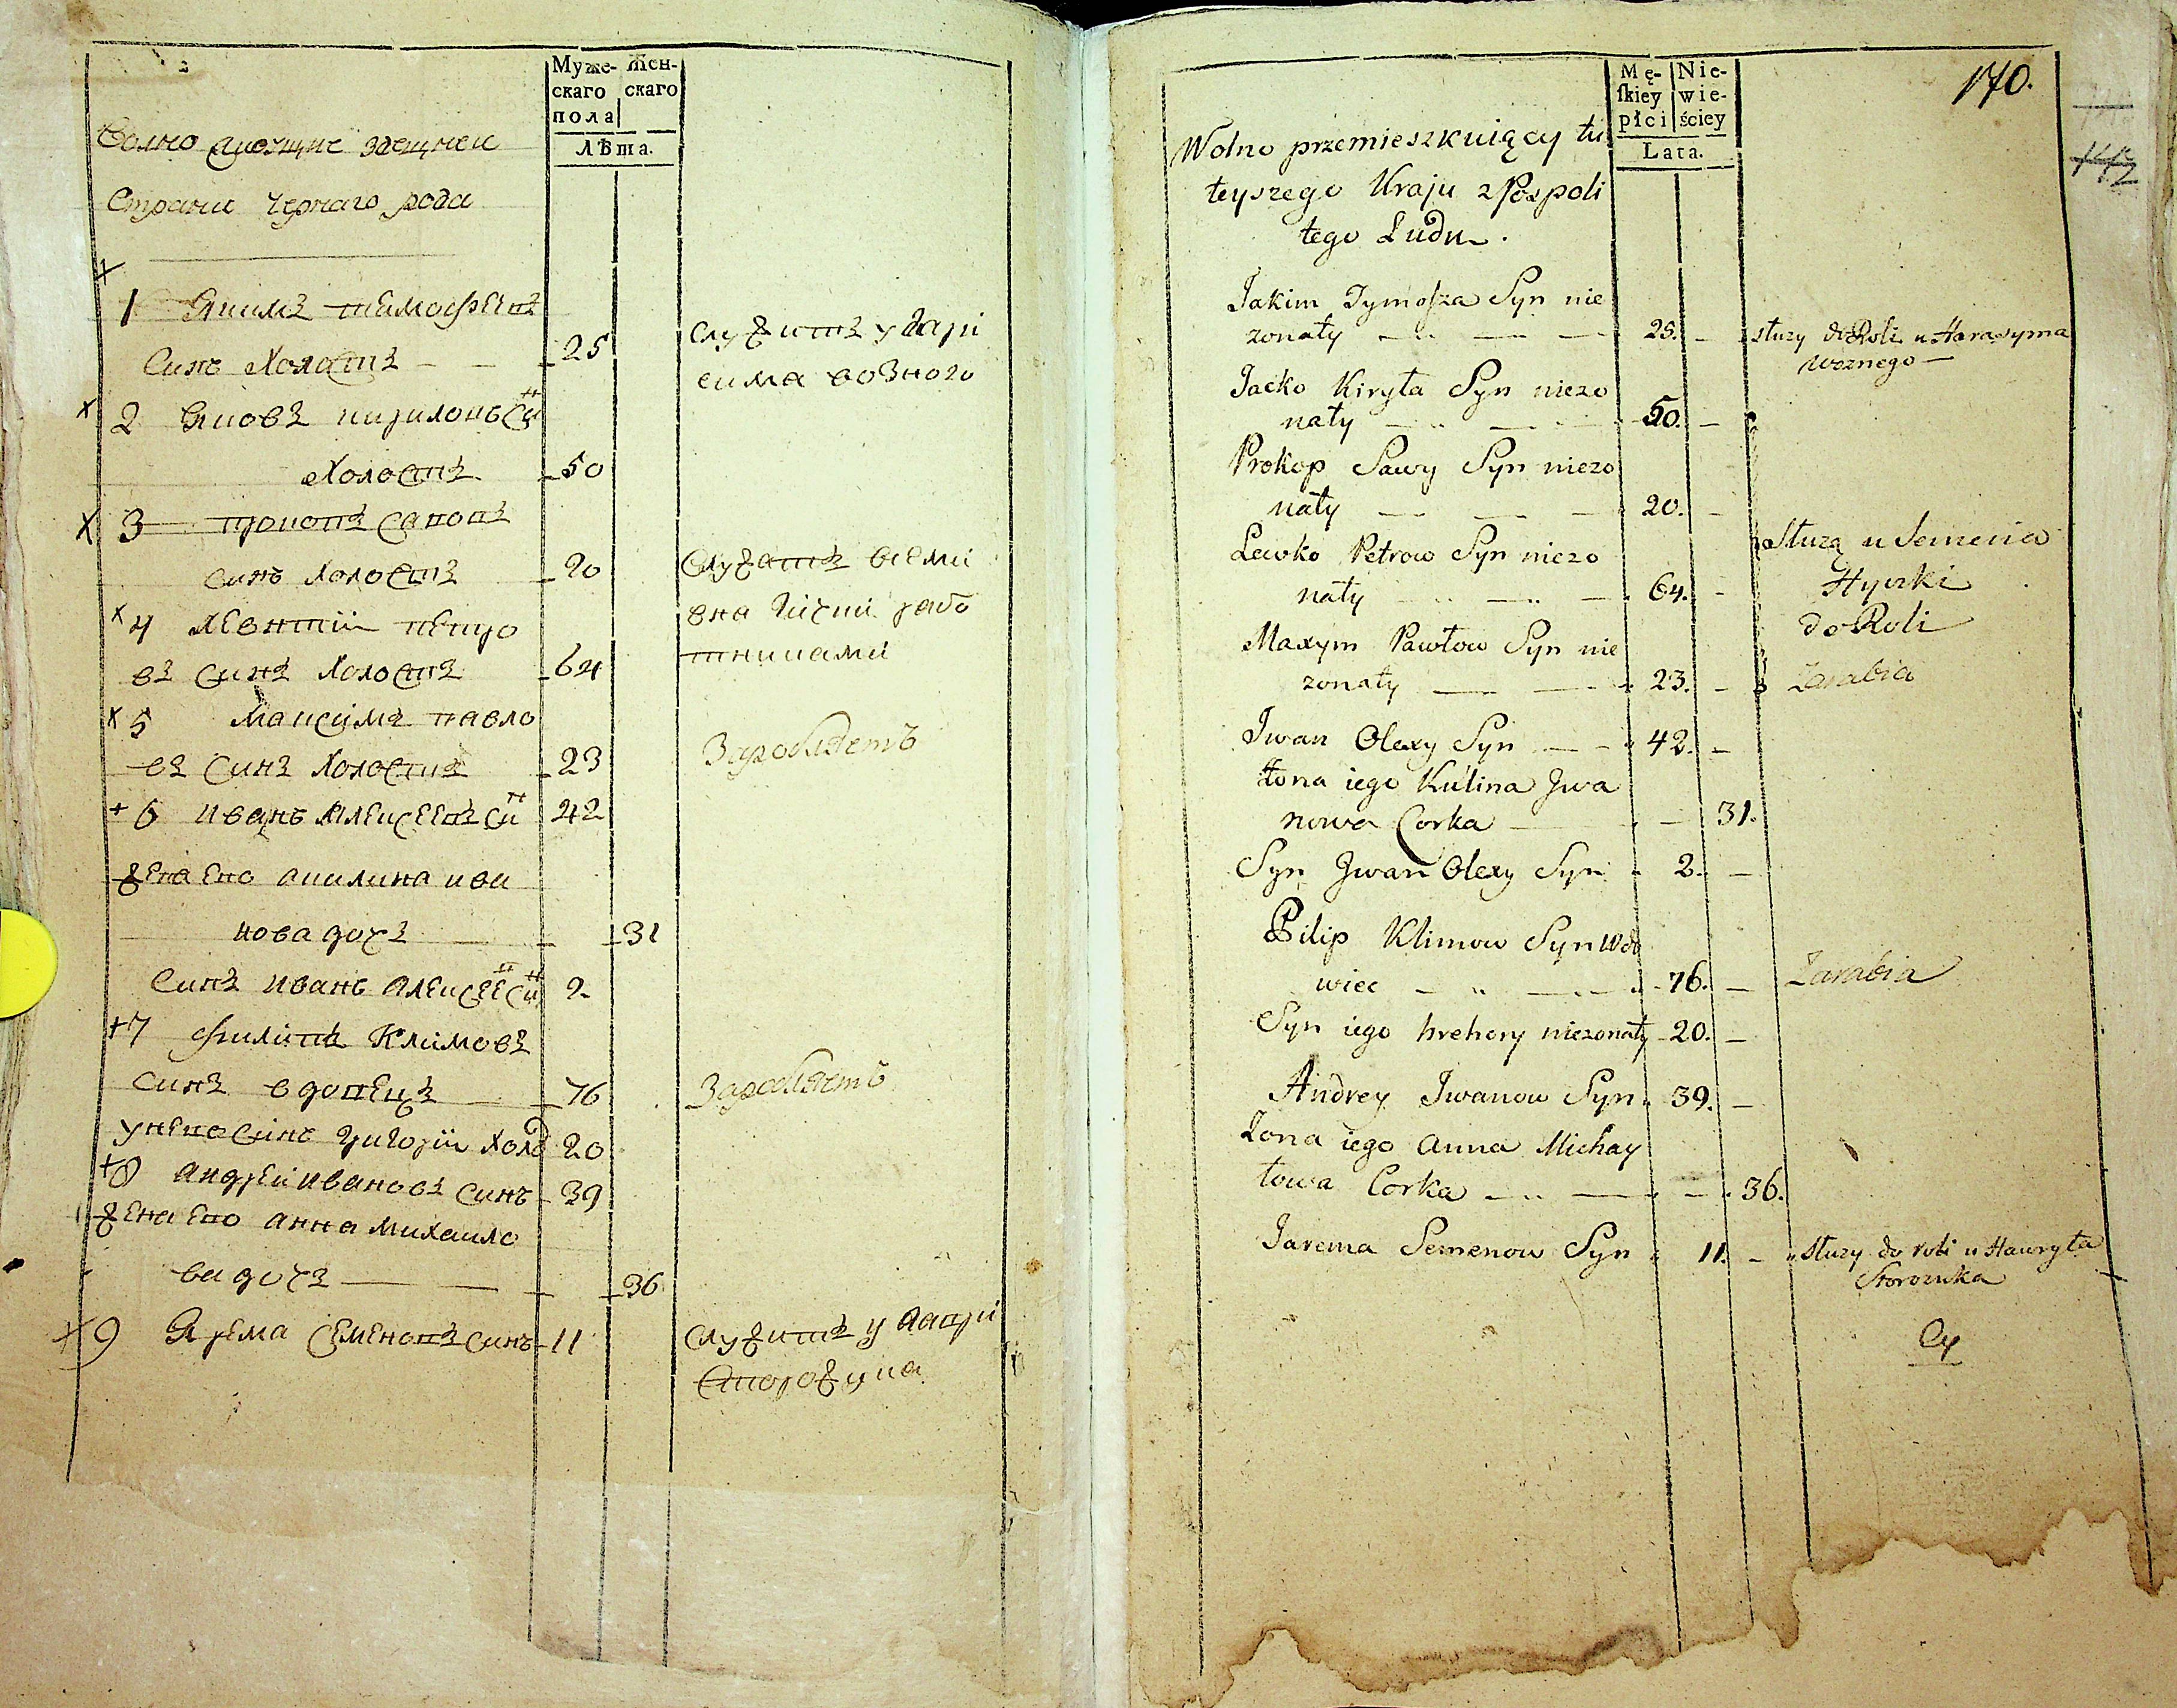 Муже- Жен-
скаго скаго
пола
Лѣта.
Волно живущие здешней
Страни Черного рода
1 Якимъ тимофѣевъ
Синъ Холостъ 25 служитъ у Гара
сима возного
2 Яковъ кириловъ Сиⁿ
Холостъ 50
3 прокопъ савовъ
синъ Холостъ 20
Служатъ всеми
4 Левтій петро
въ Синъ Холостъ 64
тниками
5 Максимъ павло
въ Синъ Холостъ 23 Заробляетъ
6 Иванъ Алексеевъ Сиⁿ 42
жена его акилина ива
нова дочъ 31
Синъ Иванъ Алексее Сиⁿ 2
7 Филипъ Климовъ
Синъ вдовецъ 76 Заробляетъ
у него Синъ Григорій Холо 20
8 Андрей Ивановъ Синъ 39
жена его анна михаило
ва дочъ 36
9 Ярема Семеновъ синъ 11 Служитъ у Гаври
Сторожука
170.
142
Mę- Nie-
skiey wie-
płci ściey
Lata.
Wolno przemieszkuiący tu
teyszego Kraju z Pospoli
tego Ludu.
Jakim Tymosza Syn nie
zonaty 25. służy do Roli u Harasyma
woznego
Jacko Kiryła Syn niezo
naty 50.
Prokop Sawy Syn niezo
naty 20.
Służą u Semena
Lewko Petrow Syn niezo
naty 64.
do Roli
Maxym Pawłow Syn nie
zonaty 23. Zarabia
Iwan Olexy Syn 42.
Żona iego Kulina Iwa
nowa Corka 31.
Syn Iwan Olexy Syn 2.
Pilip Klimow Syn wdo
wiec 76. Zarabia
Syn iego hrehory niezonaty 20.
Andrey Iwanow Syn 39.
Żona iego Anna Michay
łowa Corka 36.
Jarema Semenow Syn 11. służy do roli u Hawryła
Storozuka